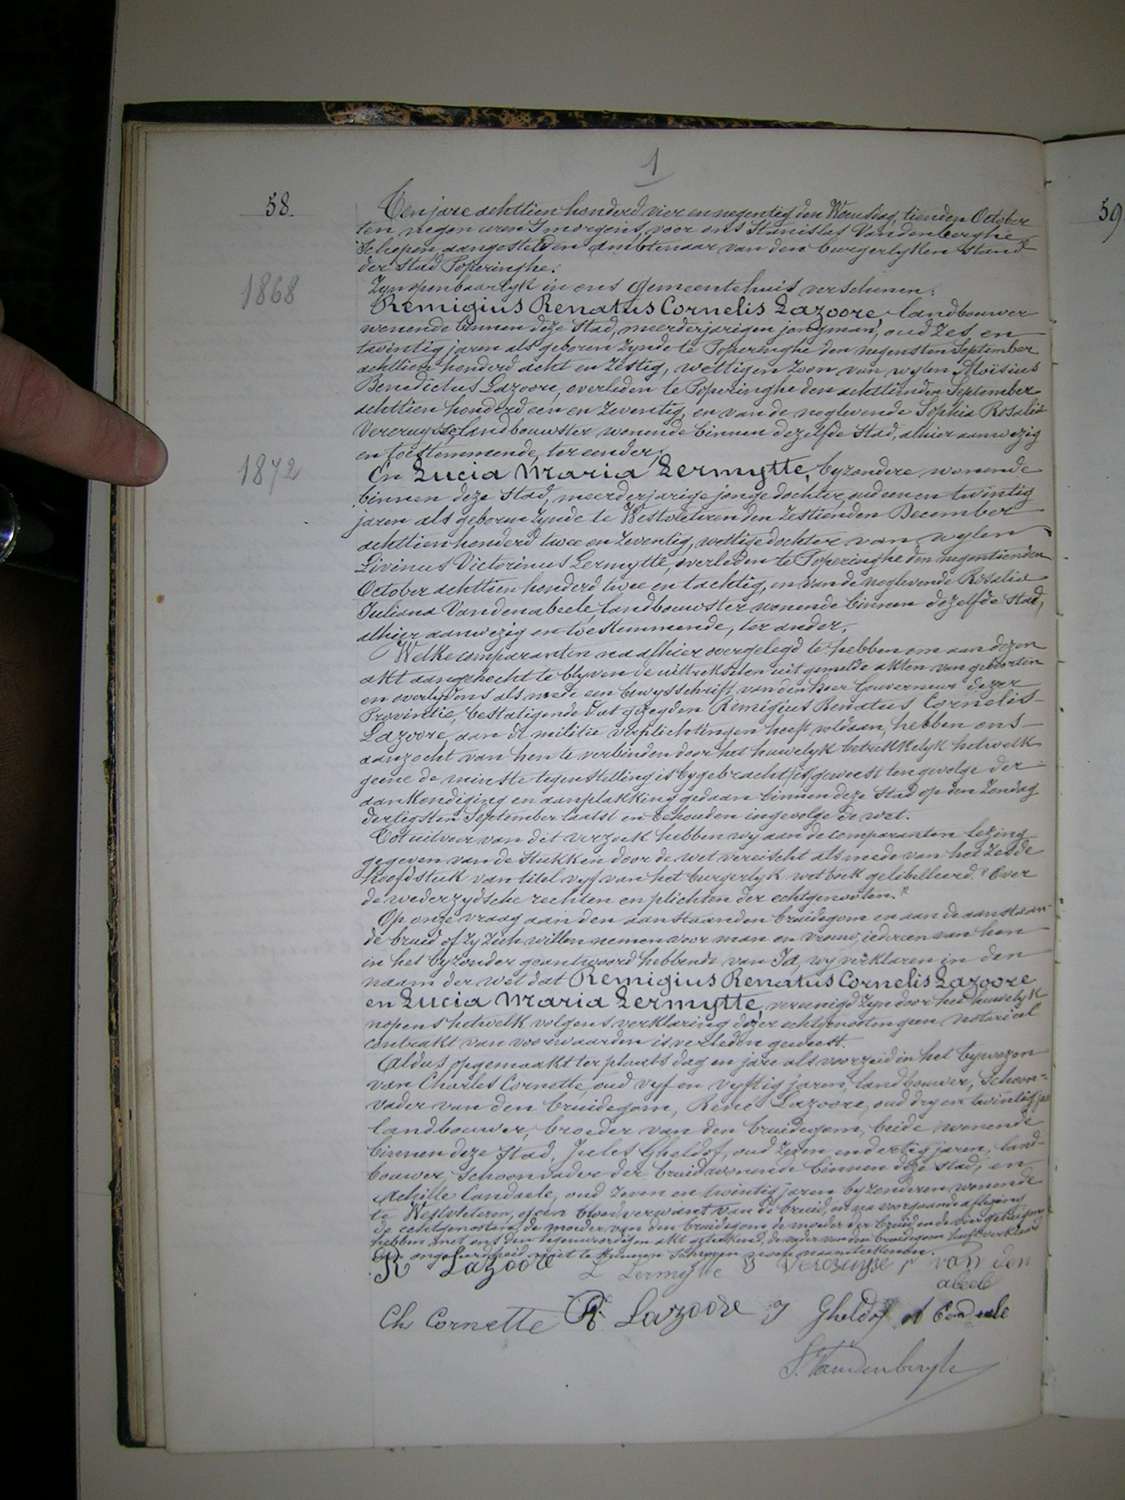 1
58.
59
Ten jare achttien honderd vier en negentig den Woensdag, tienden October
ten negen uren 's morgens, voor ons Stanislas Vandenberghe
Schepen aangestelden Ambtenaar van den burgerlyken stand
der Stad Poperinghe.
Zyn openbaarlyk in ons Gemeentehuis verschenen:
1868
Remigius Renatus Cornelis Lazoore, landbouwer
wonende binnen deze stad, meerderjarigen jongman, oud zes en
twintig jaren als geboren zynde te Poperinghe den negensten September
achttien honderd acht en zestig, wettigen zoon van wylen Aloisius
Benedictus Lazoore, overleden te Poperinghe den achttienden September
achttien honderd een en zeventig, en van de noglevende Sophia Rosalia
Vercruysse, landbouwster wonende binnen dezelfde Stad, alhier aanwezig
en toestemmende, ter eender;
1872
En Lucia Maria Lermytte, byzondere wonende
binnen deze stad, meerderjarige jonge dochter, oud een en twintig
jaren als geboren zynde te Westvleteren den zestienden December
achttien honderd twee en zeventig, wettige dochter van wylen
Livinus Victorinus Lermytte, overleden te Poperinghe den negentienden
October achttien honderd twee en tachtig, en van de noglevende Rosalia
Juliana Vandenabeele, landbouwster wonende binnen dezelfde stad,
alhier aanwezig en toestemmende, ter ander.
Welke comparanten na alhier overgelegd te hebben om aan dezen
akt aangehecht te blyven de uittreksels uit gemelde akten van geboorten
en overlydens als mede een bewysschrift van den heer Gouverneur dezer
Provintie, bestatigende dat gezegden Remigius Renatus Cornelis
Lazoore, aan de militie verplichtingen heeft voldaan, hebben ons
aanzocht van hen te verbinden door het huwelyk betrekkelyk hetwelk
geene de minste tegenstelling is bygebracht geweest ten gevolge der
aankondiging en aanplakking gedaan binnen deze Stad op den Zondag
dertigsten September laatst en behouden ingevolge de wet.
Tot uitvoer van dit verzoek hebben wy aan de comparanten lezing
gegeven van de stukken door de wet vereischt als mede van het zesde
hoofdstuk van titel vyf van het burgerlyk wetboek gelibelleerd "Over
de wederzydsche rechten en plichten der echtgenooten."
Op onze vraag aan den aanstaanden bruidegom en aan de aanstaan-
de bruid of zy zich willen nemen voor man en vrouw, iedereen van hen
in het byzonder geantwoord hebbende van Ja, wy verklaren in den
naam der wet dat Remigius Renatus Cornelis Lazoore
en Lucia Maria Lermytte, vereenigd zyn door het huwelyk
nopens hetwelk volgens verklaring dezer echtgenooten geen notarieel
contrakt van voorwaarden is verleden geweest.
Aldus opgemaakt ter plaats dag en jare als voorzeid in het bywezen
van Charles Cornette, oud vyf en vyftig jaren, landbouwer, Schoon-
vader van den bruidegom, René Lazoore, oud dry en twintig jaren
landbouwer, broeder van den bruidegom, beide wonende
binnen deze stad, Jules Gheldof, oud zeven en dertig jaren, land-
bouwer, Schoonvader der bruid wonende binnen deze stad, en
Achille Candaele, oud zeven en twintig jaren byzonderen wonende
te Westvleteren, geen bloedverwant van de bruid, en na voorgaande aflezing
de echtgenooten, de moeder van den bruidegom, de moeder der bruid en de vier getuigen
hebben met ons den tegenwoordigen akt geteekend,
R Lazoore L Lermytte S Vercruysse r van den
abeele
Ch Cornette R. Lazoore J Gheldof A Candaele
S. Vandenberghe